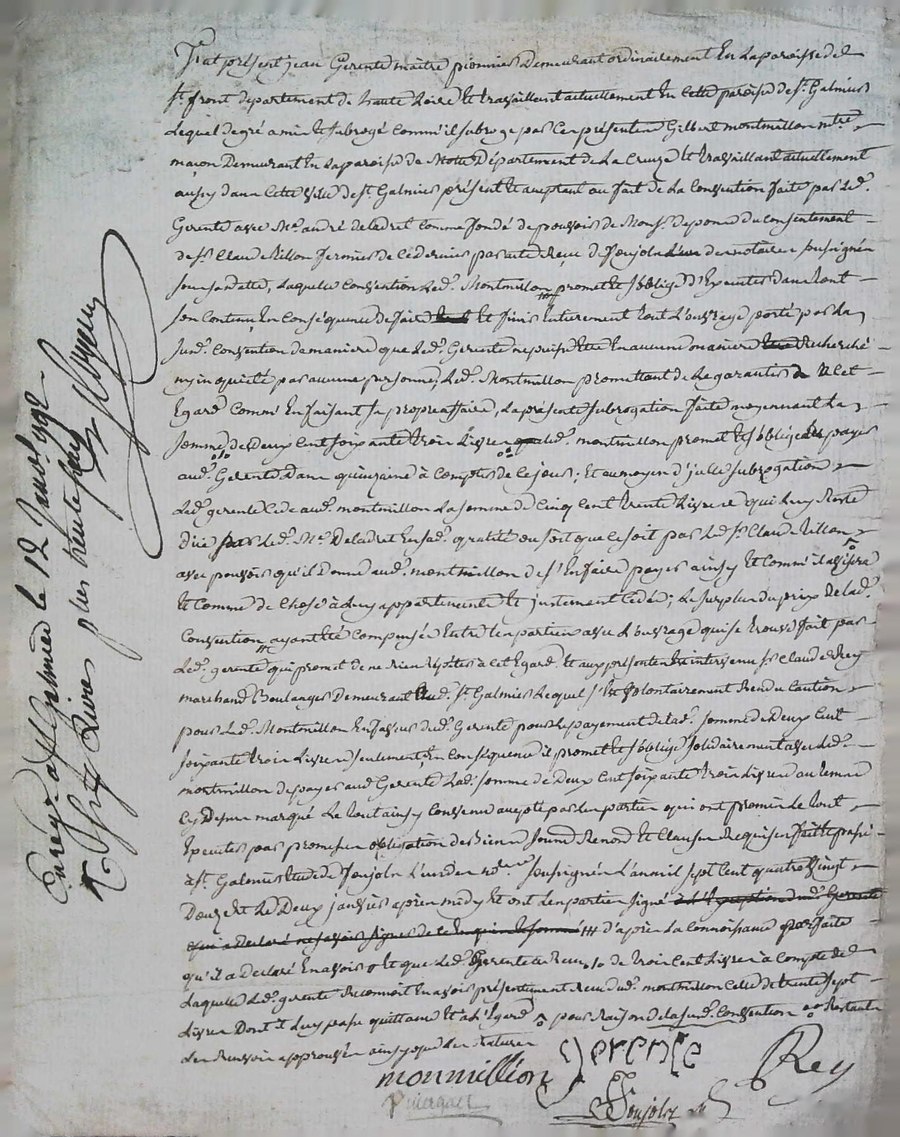 fut présent jean Gerente maitre pionnier Demeurant ordinairement En La paroisse de
st. front departement de haute Loire Et travaillant actuellement En cette paroisse de st. Galmier
Lequel de gré a mis Et subrogé comme il subroge par Ces présentes Gilbert montmillon mtre.
maçon Demeurant En La paroisse de Département de La Creuze Et travaillant actuellement
aussy dans Cette ville de st. Galmier présent Et acceptant au fait de La Convention faite par Led.
Gerente avec Me. andré deladret Comme fondé de pouvoir de Mons. du Consentement
de sr. Claude Rillon fermier de Ce dernier par acte Reçu de Poujolz L'un des notaires soussignés
sous sa datte, Laquelle Convention Led. Montmillon promet Et s'oblige d'Executer dans tout
son Contenu, En Conséquence de faire Et finir Entierement tout L'ouvrage porté par La
susd. Convention de maniere que Led. Gerente ne puisse Etre En aucune maniere Recherché
ny inquiété par aucune personne, Led. Montmillon promettant de Le garantir a Cet
Egard Comme En faisant sa propre affaire, La présente subrogation faite moyennant La
somme de Deux Cent soixante trois Livres que Led. montmillon promet Et s'oblige de payer
aud. Gerente Dans quinzaine à Compter de Ce jour; Et au moyen d'jcelle subrogation
Led. gerente Cède aud. montmillon La somme de Cinq Cent trente Livres qui Luy Reste
düe par Led. Me. Deladret En sad. qualité ou soit que Ce soit par Led. sr. Claude Rillon
avec pouvoir qu'il Donne aud. montmillon de s'En faire payer ainsy Et Comme il avisera
Et Comme de Chose à Luy appartenante Et justement Cédée; Le surplus du prix de Lad.
Convention ayant été Compensé Entre Les parties avec L'ouvrage qui se trouve fait par
Led. gerente qui promet de ne rien Repéter à cet Egard Et aux présentes Est intervenu sr. Claude Rey
marchand Boulanger Demeurant aud. st. Galmier Lequel s'est Volontairement Rendu Caution
pour Led. Montmillon En faveur dud. Gerente pour Le payement de Lad. somme de Deux Cent
soixante trois Livres seulement En Conséquence il promet Et s'oblige solidairement avec Led.
montmillon de payer aud. Gerente Lad. somme de Deux Cent soixante trois Livres au terme
Cy Dessus marqué Le tout ainsy Convenu accepté par Les parties qui ont promis Le tout
Executer par promesses obligation de Biens Renond Et Clauses Requises fait Et passé
à st. Galmier Etude de Poujolz L'un des nores. soussignés L'an mil sept Cent quatre vingt
Douze Et Le Deux janvier après midy Et ont Les parties signé à L'Exception dud. Gerente
qui a Declaré ne savoir signer de Ce Enquis Et sommé d'après La Connoissance parfaite
qu'il a Declaré En avoir Et que Led. Gerente a Reçu de trois Cent Livres à Compte de
Laquelle Led. gerente Reconnoit En avoir présentement Reçu dud. montmillon Celle de trente sept
Livres Dont il Luy passe quittance Et à L'Egard pour Raison de La susd. Convention Restante
des Renvois approuvés ainsy que Les Ratures
monmillion gerente Rey
Poujolz
Enreg. à st. Galmier le 12 Janv. 1792
Reçu Livres plus trente sous